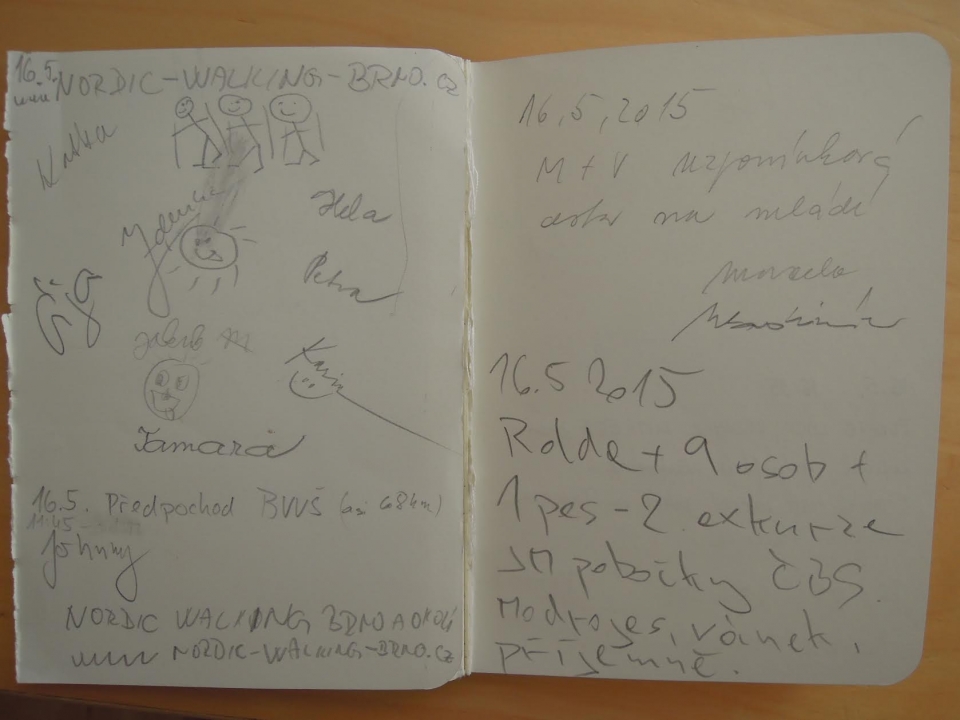 16.5.
www NORDIC-WALKING-BRNO.CZ
Katka
Zdenka
Hela
Petra
Jakub M
Karin
Tamara
16.5. Předpochod BVVŠ (asi 68km)
11:45
Johnny
NORDIC WALKING BRNO A OKOLÍ
www NORDIC-WALKING-BRNO.CZ
16,5,2015
M+V vzpomínková
na mládí
Marcela
Vladimír
16.5 2015
+ 9 osob +
1 pes - 2. exkurze
JM pobočky ČBS.
Modrojes, vánek,
příjemně.